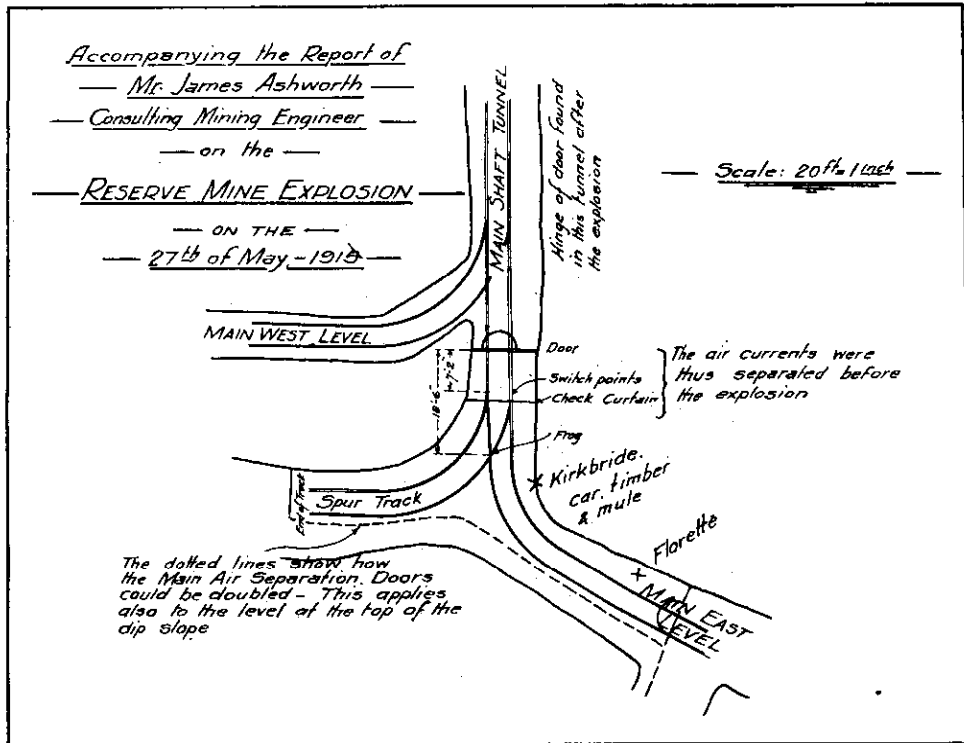 Accompanying the Report of
Mr. James Ashworth
Consulting Mining Engineer
on the
RESERVE MINE EXPLOSION
ON THE
27th of May-1915
Scale: 20ft=1 inch
MAIN SHAFT TUNNEL
Hinge of door found
in this tunnel after
the explosion
MAIN WEST LEVEL
Door
7'-2"
18'-6"
Switch points
Check Curtain
The air currents were
thus separated before
the explosion
Frog
Kirkbride.
car. timber
& mule
Spur Track
End of Track
Florette
MAIN EAST
LEVEL
The dotted lines show how
the Main Air Separation Doors
could be doubled - This applies
also to the level at the top of the
dip slope